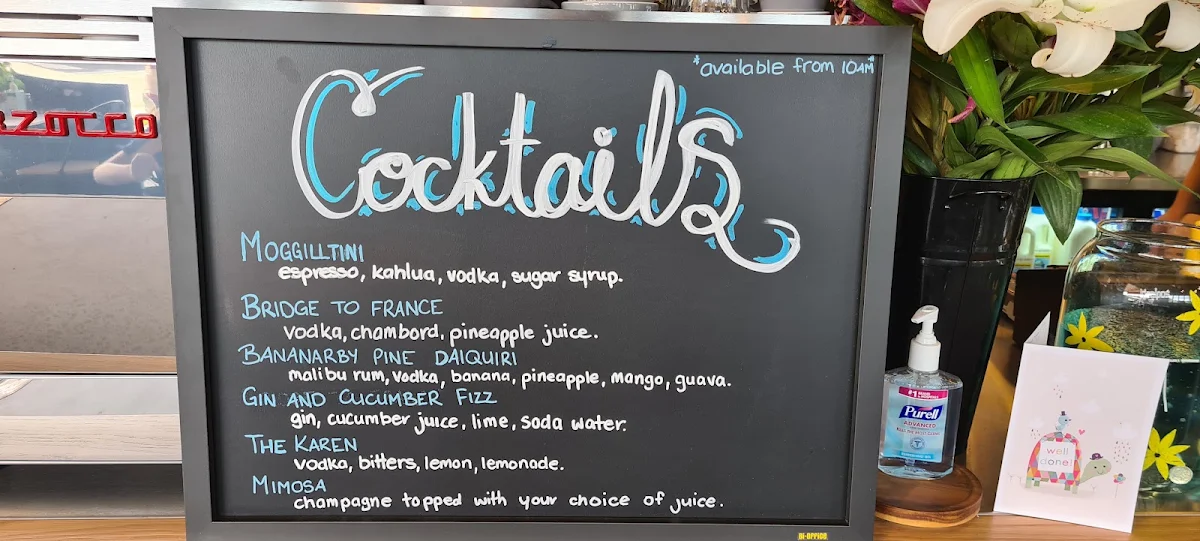 *available from 10AM*
Cocktails
MOGGILLTINI
espresso, kahlua, vodka, sugar syrup.
BRIDGE TO FRANCE
vodka, chambord, pineapple juice.
BANANARBY PINE DAIQUIRI
malibu rum, vodka, banana, pineapple, mango, guava.
GIN AND CUCUMBER FIZZ
gin, cucumber juice, lime, soda water.
THE KAREN
vodka, bitters, lemon, lemonade.
MIMOSA
champagne topped with your choice of juice.
BI-OFFICE
#1
Purell
ADVANCED
well
done!